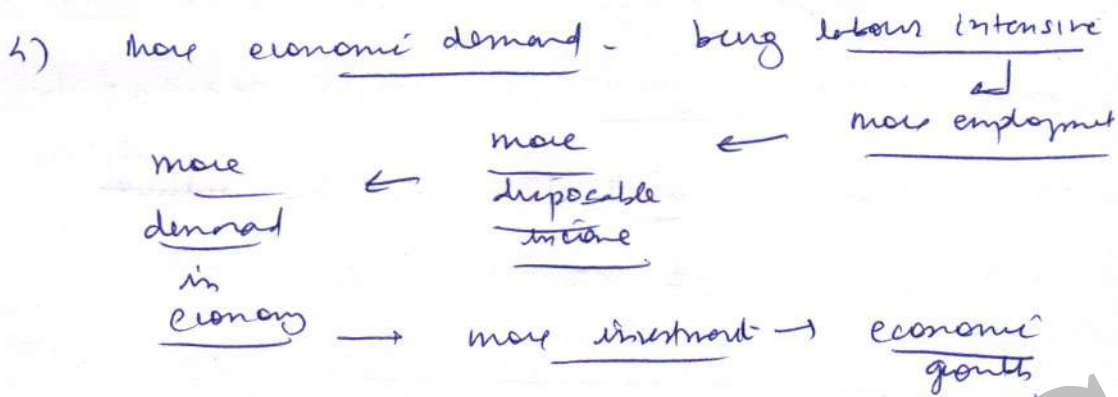 4) More economic demand - being labour intensive
more employment
← more disposable income
← more demand in economy
→ more investment → economic growth